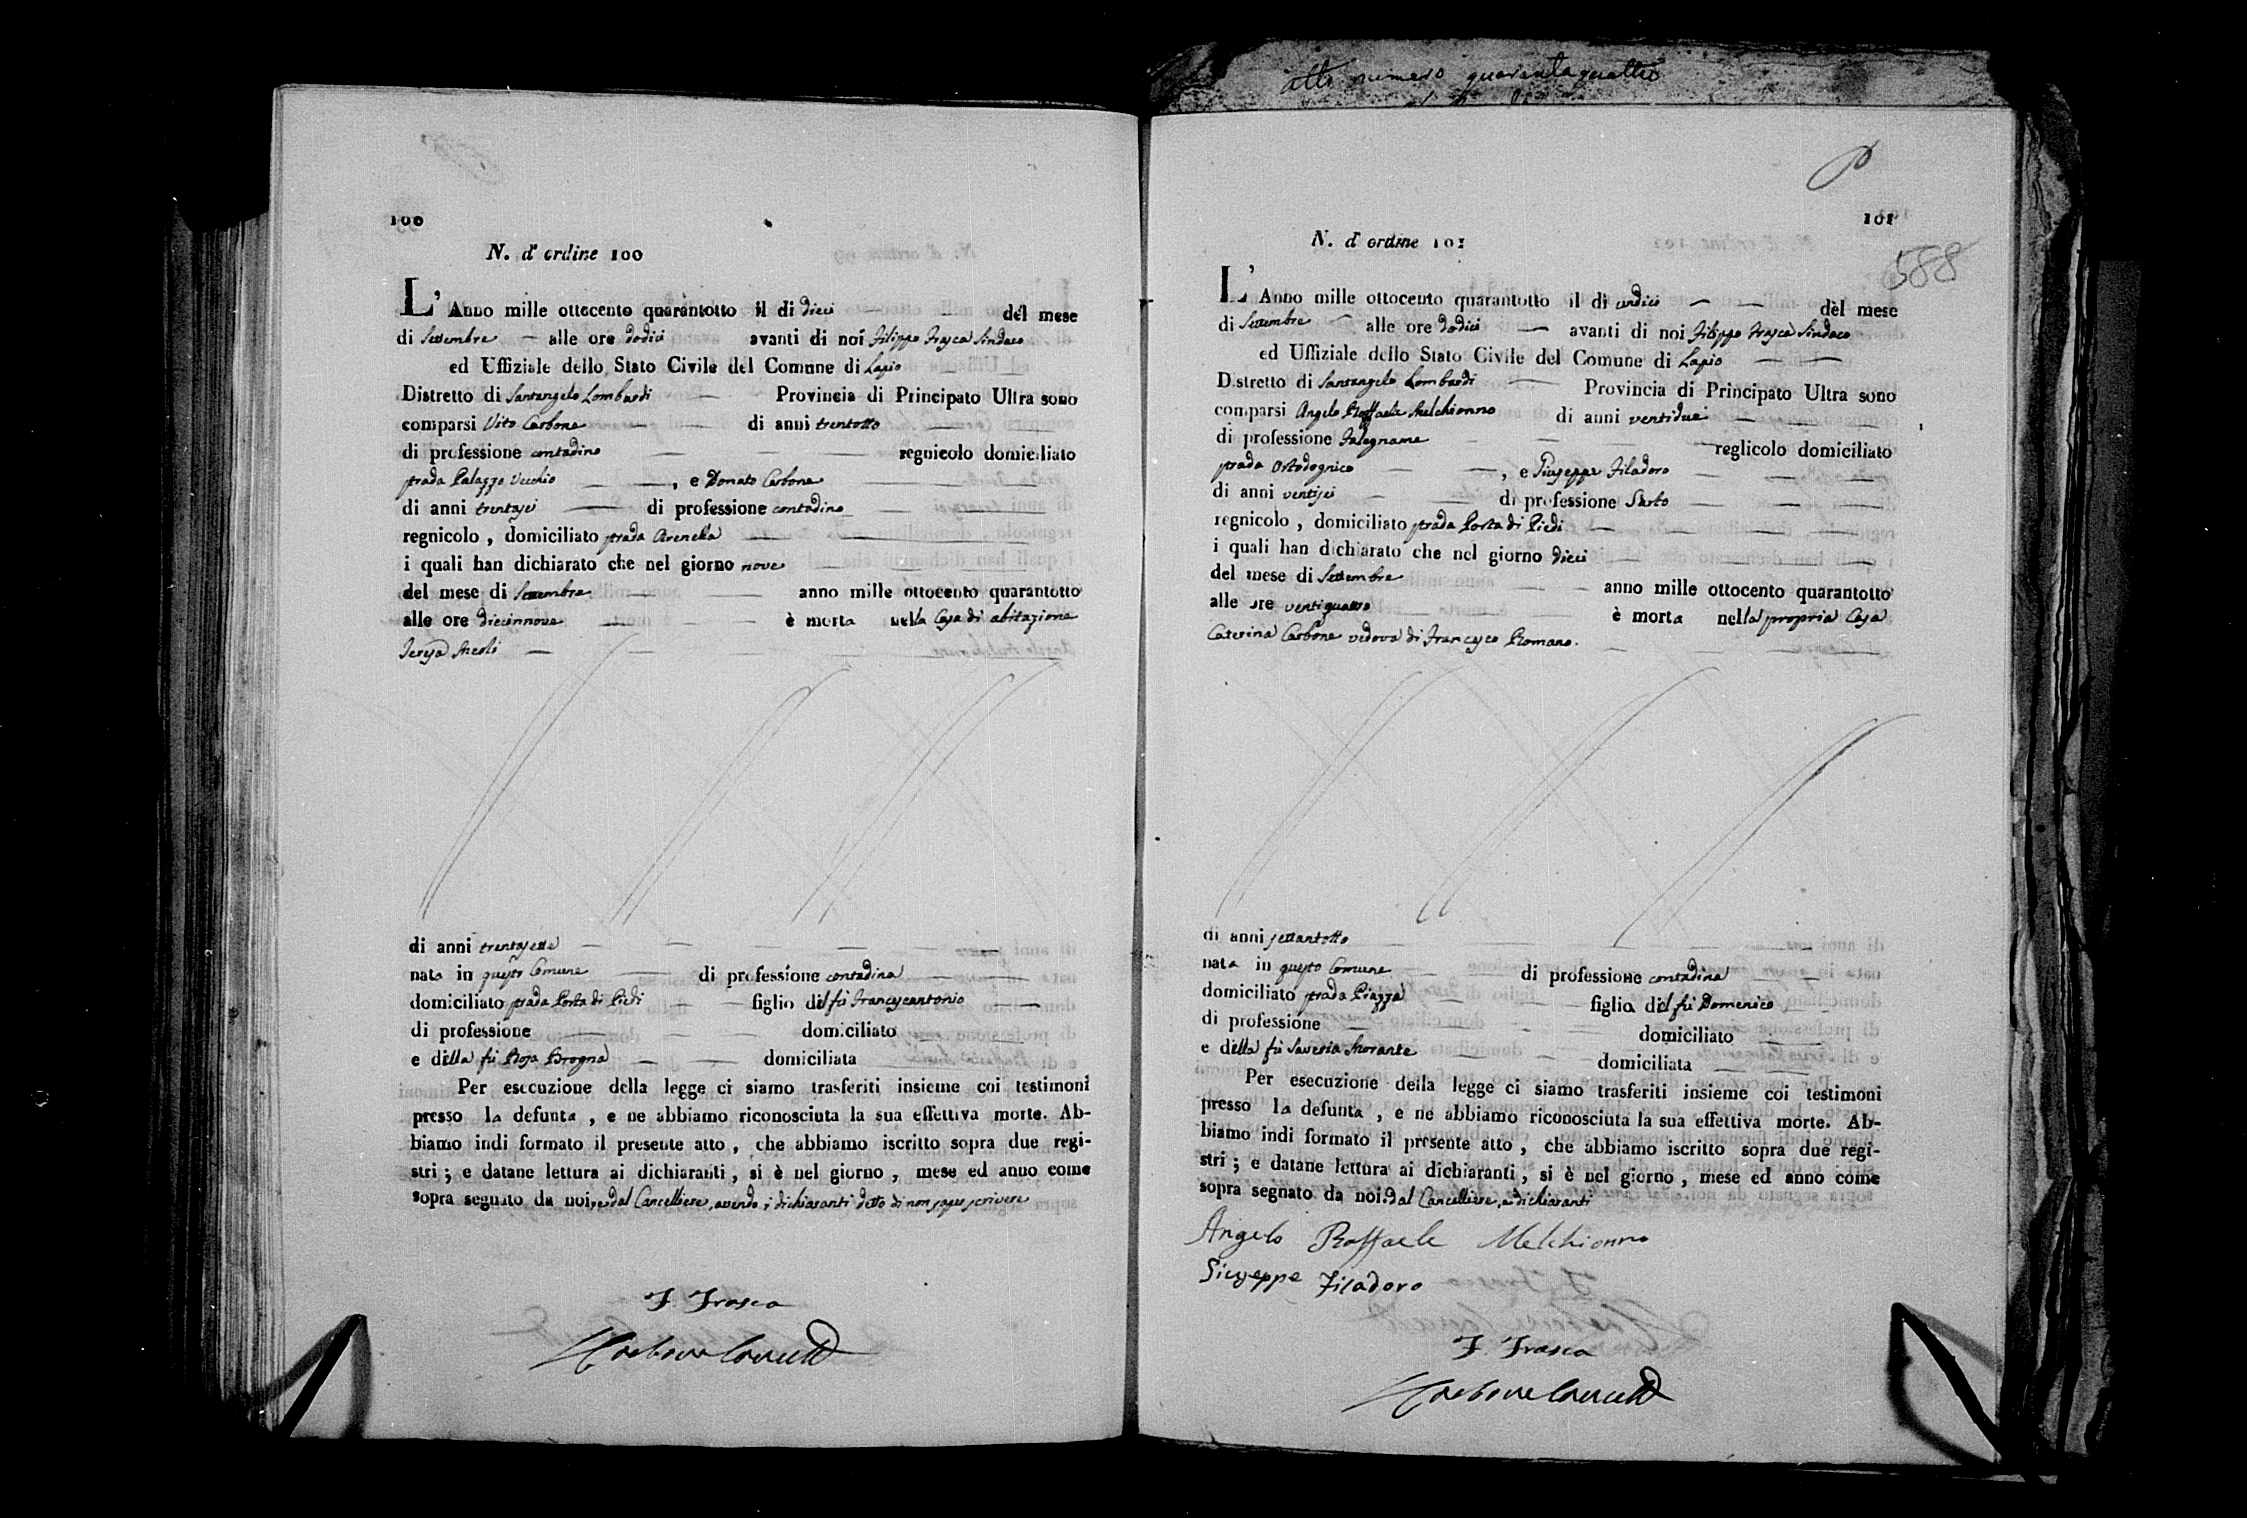 atto numero quarantaquattro
100
N. d'ordine 100
L'Anno mille ottocento quarantotto il di dieci del mese
di Settembre alle ore dodici avanti di noi Filippo Frasca Sindaco
ed Uffiziale dello Stato Civile del Comune di Lapio
Distretto di Santangelo Lombardi Provincia di Principato Ultra sono
comparsi Vito Carbone di anni trentotto
di professione contadino regnicolo domiciliato
strada Palazzo Vecchio , e Donato Carbone
di anni trentasei di professione contadino
regnicolo , domiciliato strada Arenella
i quali han dichiarato che nel giorno nove
del mese di Settembre anno mille ottocento quarantotto
alle ore diecinnove è morta nella Casa di abitazione
Teresa
di anni trentasette
nata in questo Comune di professione contadina
domiciliato strada Porta di Piedi figlio del fu Francescantonio
di professione domiciliato
e della fu Rosa Brogna domiciliata
Per esecuzione della legge ci siamo trasferiti insieme coi testimoni
presso la defunta , e ne abbiamo riconosciuta la sua effettiva morte. Ab-
biamo indi formato il presente atto , che abbiamo iscritto sopra due regi-
stri ; e datane lettura ai dichiaranti , si è nel giorno , mese ed anno come
sopra segnato da noi, e dal Cancelliere, avendo i dichiaranti detto di non saper scrivere
F. Frasca
101
588
N. d'ordine 101
L'Anno mille ottocento quarantotto il di undici del mese
di Settembre alle ore dodici avanti di noi Filippo Frasca Sindaco
ed Uffiziale dello Stato Civile del Comune di Lapio
Distretto di Santangelo Lombardi Provincia di Principato Ultra sono
comparsi Angelo Raffaele Melchionno di anni ventidue
di professione Falegname reglicolo domiciliato
strada Ortodognico , e Giuseppe Filadoro
di anni ventisei di professione Sarto
regnicolo , domiciliato strada Porta di Piedi
i quali han dichiarato che nel giorno dieci
del mese di Settembre anno mille ottocento quarantotto
alle ore ventiquattro è morta nella propria Casa
Caterina Carbone vedova di Francesco Romano.
di anni settantotto
nata in questo Comune di professione contadina
domiciliato strada Piazza figlia del fu Domenico
di professione domiciliato
e della fu Saveria Morante domiciliata
Per esecuzione della legge ci siamo trasferiti insieme coi testimoni
presso la defunta , e ne abbiamo riconosciuta la sua effettiva morte. Ab-
biamo indi formato il presente atto , che abbiamo iscritto sopra due regi-
stri ; e datane lettura ai dichiaranti , si è nel giorno , mese ed anno come
sopra segnato da noi, dal Cancelliere, e dichiaranti
Angelo Raffaele Melchionno
Giuseppe Filadoro
F. Frasca